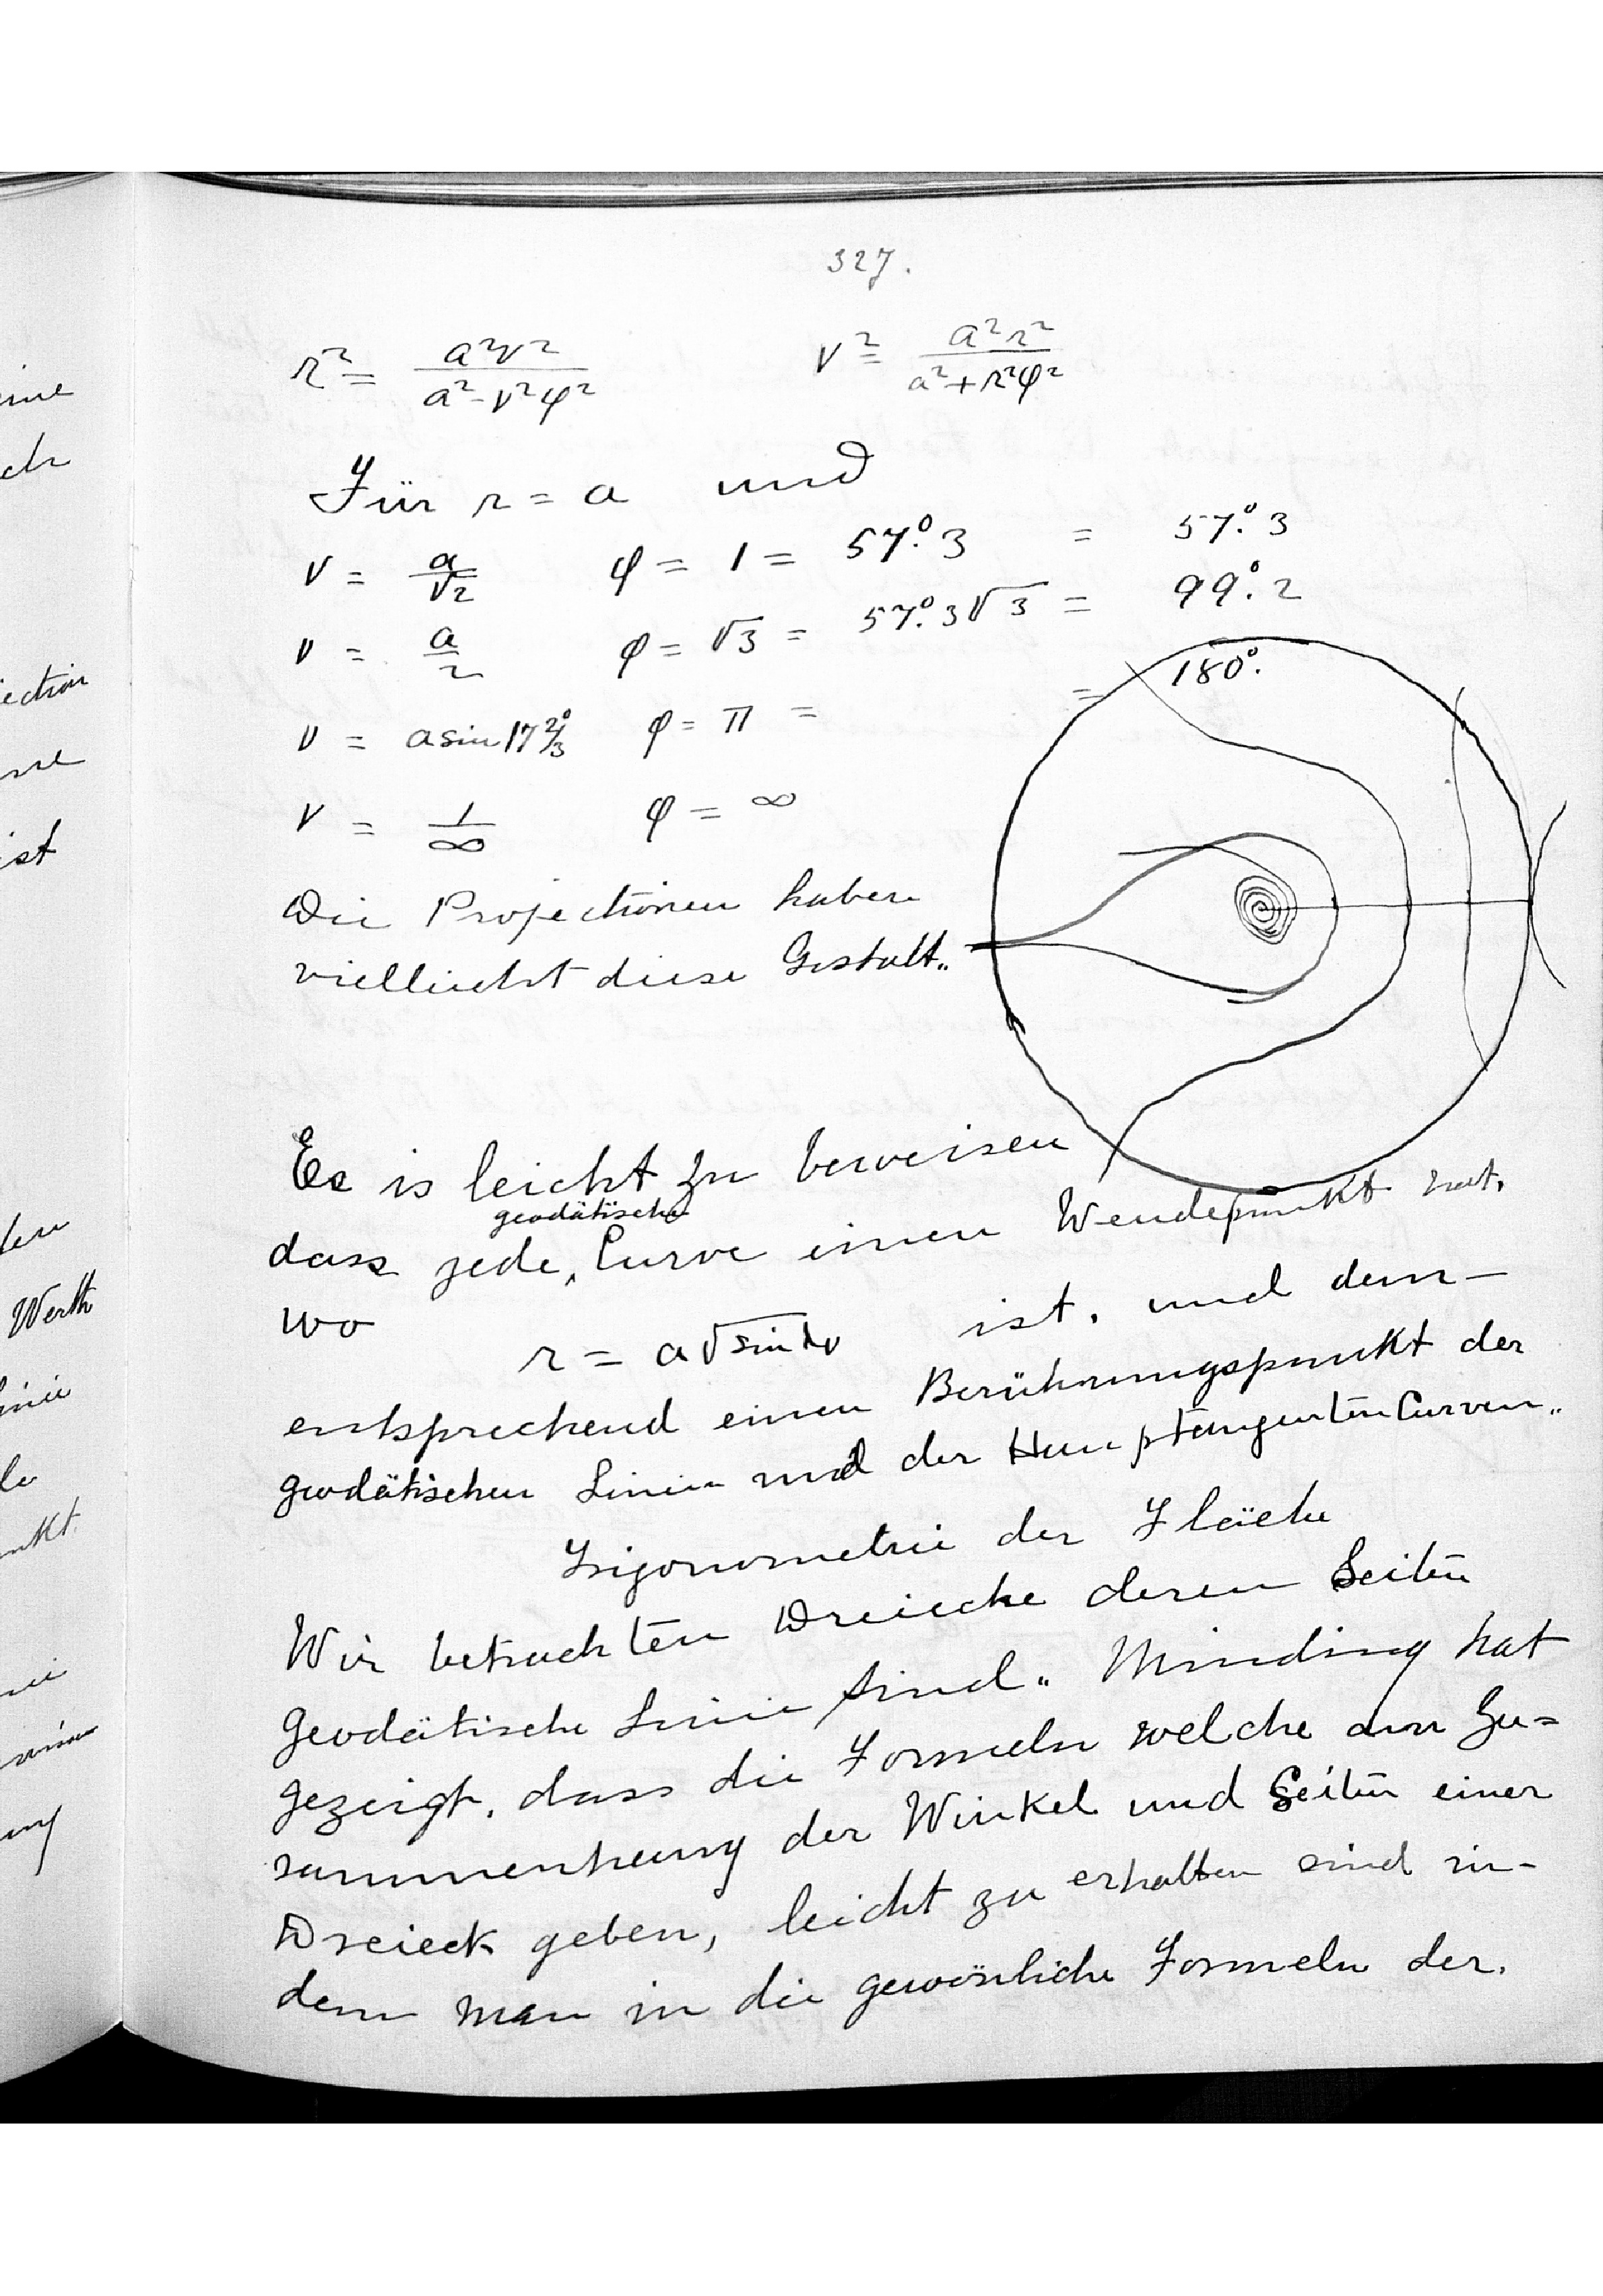 327.
r² = a²v² / (a² - v²φ²)    v² = a²r² / (a² + r²φ²)
Für r = a und
v = a/√2    φ = 1 = 57°.3 = 57°.3
v = a/2    φ = √3 = 57°.3√3 = 99°.2
v = a sin 17⅔°    φ = π = = 180°.
v = 1/∞    φ = ∞
Die Projectionen haben
vielleicht diese Gestalt..
Es is leicht zu beweisen
geodätische
dass jede, Curve einen Wendepunkt hat.
wo
r = a√sin ist. und dem-
entsprechend einen Berührungspunkt der
geodätischen Linien und der HauptangentenCurven..
Trigonometrie der Fläche
Wir betrachten Dreiecke deren Seiten
Geodätische Linie sind.. Minding hat
gezeigt, dass die Formeln welche den Zu=
sammenhang der Winkel und Seiten einer
Dreieck geben, leicht zu erhalten sind in-
dem man in die gewönliche Formeln der.
eine
ch
ection
ist
den
Werth
Linie
nkt.